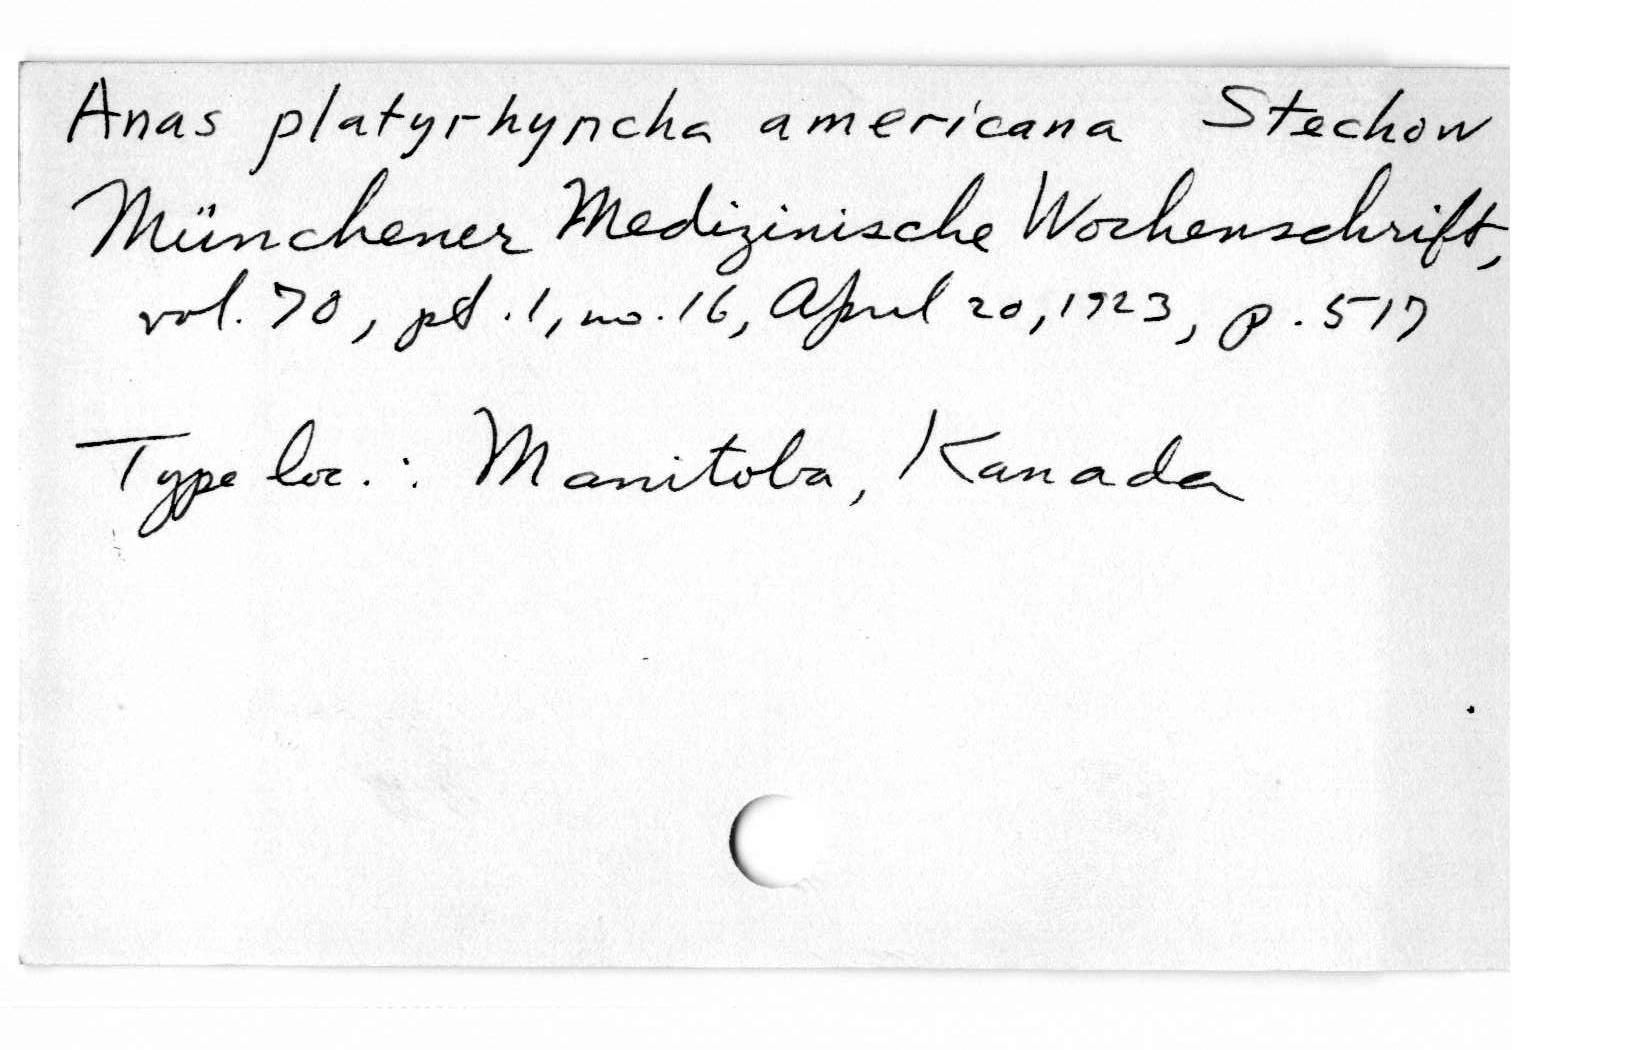 Anas platyrhyncha americana Stechow
Münchener Medizinische Wochenschrift,
vol. 70, pt. 1, no. 16, April 20, 1923, p. 517
Type loc. : Manitoba, Kanada